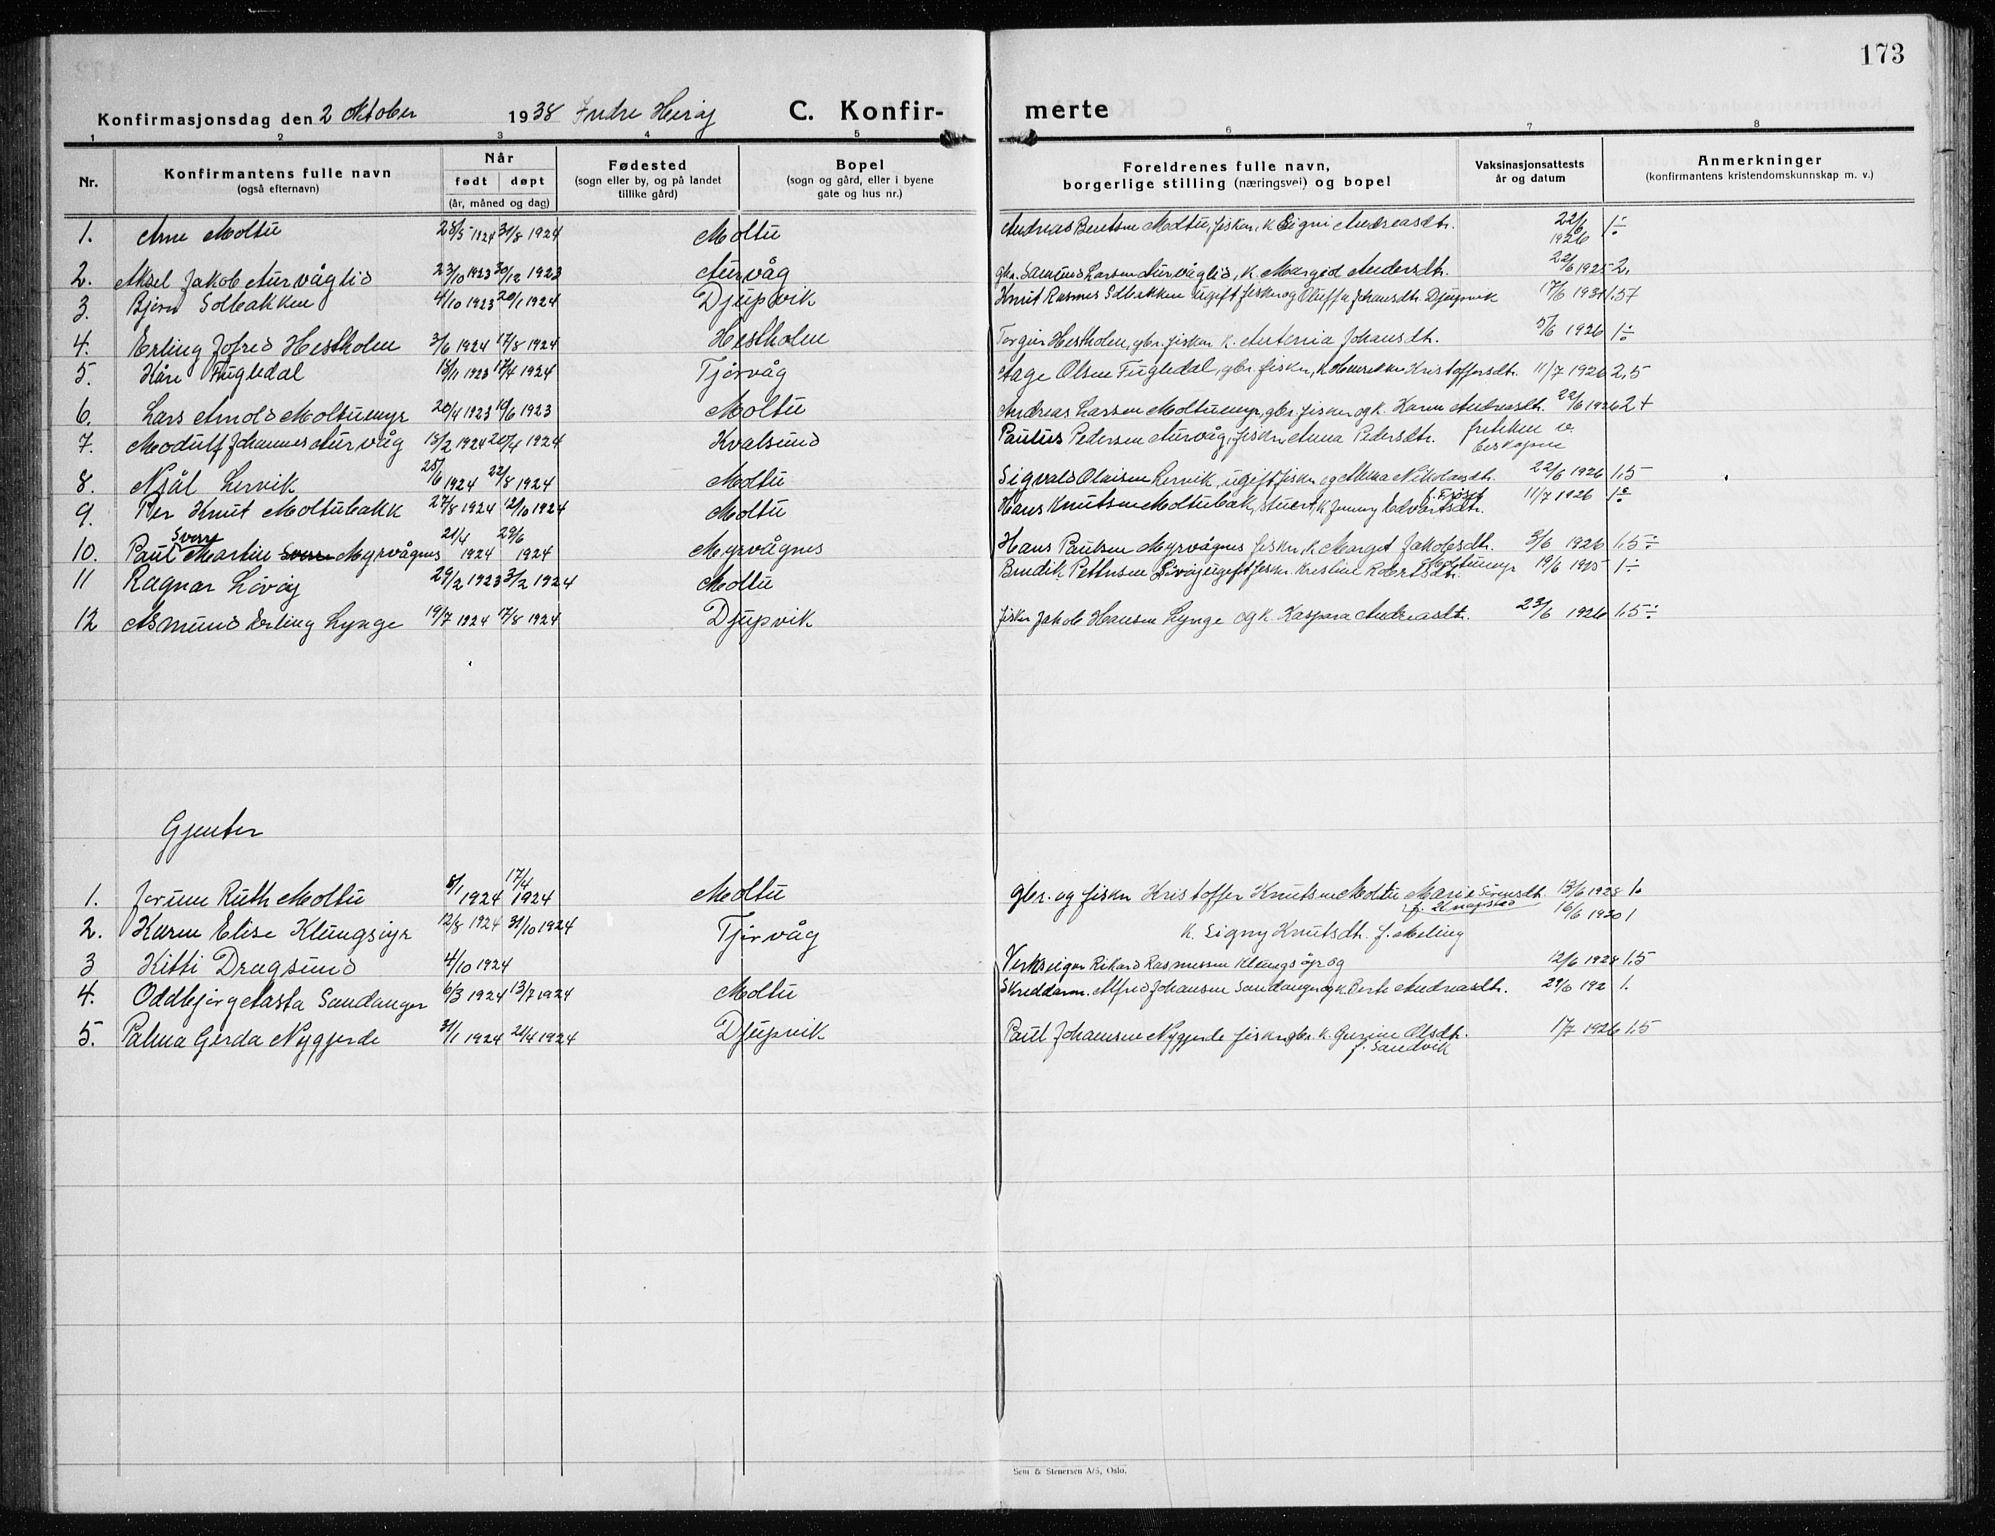 173
Konfirmasjonsdag den 2 oktober 1938 Indre Herøy C. Konfir- merte
1 2 3 4 5 6 7 8
Nr. Konfirmantens fulle navn (også efternavn) Når født døpt (år, måned og dag) Fødested (sogn eller by, og på landet tillike gård) Bopel (sogn og gård, eller i byene gate og hus nr.) Foreldrenes fulle navn, borgerlige stilling (næringsvei) og bopel Vaksinasjonsattests år og datum Anmerkninger (konfirmantens kristendomskunnskap m. v.)
1. Arne Moltu 28/5 1924 31/8 1924 Moltu Andreas Bentsen Moltu, fisker, k Signi Andreasdtr. 22/6 1926 1÷
2. Aksel Jakob Aurvåglid 23/10 1923 30/12 1923 Aurvåg Larsen Aurvåglid, k. Margid Andersdtr. 22/6 1925 2.
3. Bjørn Solbakken 4/10 1923 20/1 1924 Djupvik Knut Rasmus Solbakken ugift fisker og Oluffa Johansdtr. Djupvik 17/6 1931 1.5+
4. Erling Jofred Hestholm 3/6 1924 17/8 1924 Hestholm Torger Hestholm, gbr. fisker k. Antonia Johansdtr. 5/6 1926 1÷
5. Kåre Fugledal 15/11 1923 17/4 1924 Tjørvåg Aage Olsen Fugledal, gbr. fisker, k. Kristoffersdtr. 11/7 1926 2,5
6. Lars Arnold Moltumyr 20/4 1923 10/6 1923 Moltu Andreas Larsen Moltumyr, gbr. fisker og k. Karen Andreasdtr. 22/6 1926 2+
7. Modulf Johannes Aurvåg 15/2 1924 20/4 1924 Kvalsund Paulus Pedersen Aurvåg, fisker, Anna Pedersdtr. fritken v. biskopen
8. Njål Lervik 25/6 1924 22/8 1924 Moltu Sigvald Olaisen Lervik, ugift fisker og Nikolausdtr. 22/6 1926 1.5
9. Per Knut Moltubakk 27/8 1924 12/10 1924 Moltu Hans Knutsen Moltubak, stuert, k. Jenny Edvartsdtr. f. Fjøset 11/7 1926 1
10. Paul Sverr Martin Sverre Myrvågnes 21/4 1924 29/6 1924 Myrvågnes Hans Paulsen Myrvågnes fisker, k. Marget Jakobsdtr. 3/6 1926 1.5÷
11 Ragnar Løvøy 29/2 1923 3/2 1924 Moltu Bendik Pettersen Løvøy ugift fisker. Kristine Robertsdtr. Moltumyr 19/6 1925 1÷
12 Asmund Erling Lynge 19/7 1924 17/8 1924 Djupvik fisker Jakob Hansen Lynge og k. Kaspara Andreasdtr. 23/6 1926 1.5÷
Gjenter
1. Jorunn Ruth Moltu 8/1 1924 17/4 1924 Moltu gbr. og fisker Kristoffer Knutsen Moltu Marie Sørensdtr. 13/6 1928 1.
2. Karen Elise Klungsøyr 12/8 1924 31/10 1924 Tjørvåg k. Signy Knutsdtr. f. Meling 16/6 1920 1
3 Kitti Dragsund 4/10 1924 Verkseiger Rikard Rasmussen Klungsøyr og 12/6 1928 1.5
4. Oddbjørg Aasta Sandanger 6/3 1924 13/7 1924 Moltu Skreddarm. Alfred Johansen Sandanger og k. Berte Andreasdtr. 29/6 192 1.
5. Palma Gerda Nygjerde 31/1 1924 21/4 1924 Djupvik Paul Johansen Nygjerde fisker gbr. k. Gurine Olsdtr. f. Sandvik 1/7 1926 1.5
Sem & Stenersen A/S, Oslo.